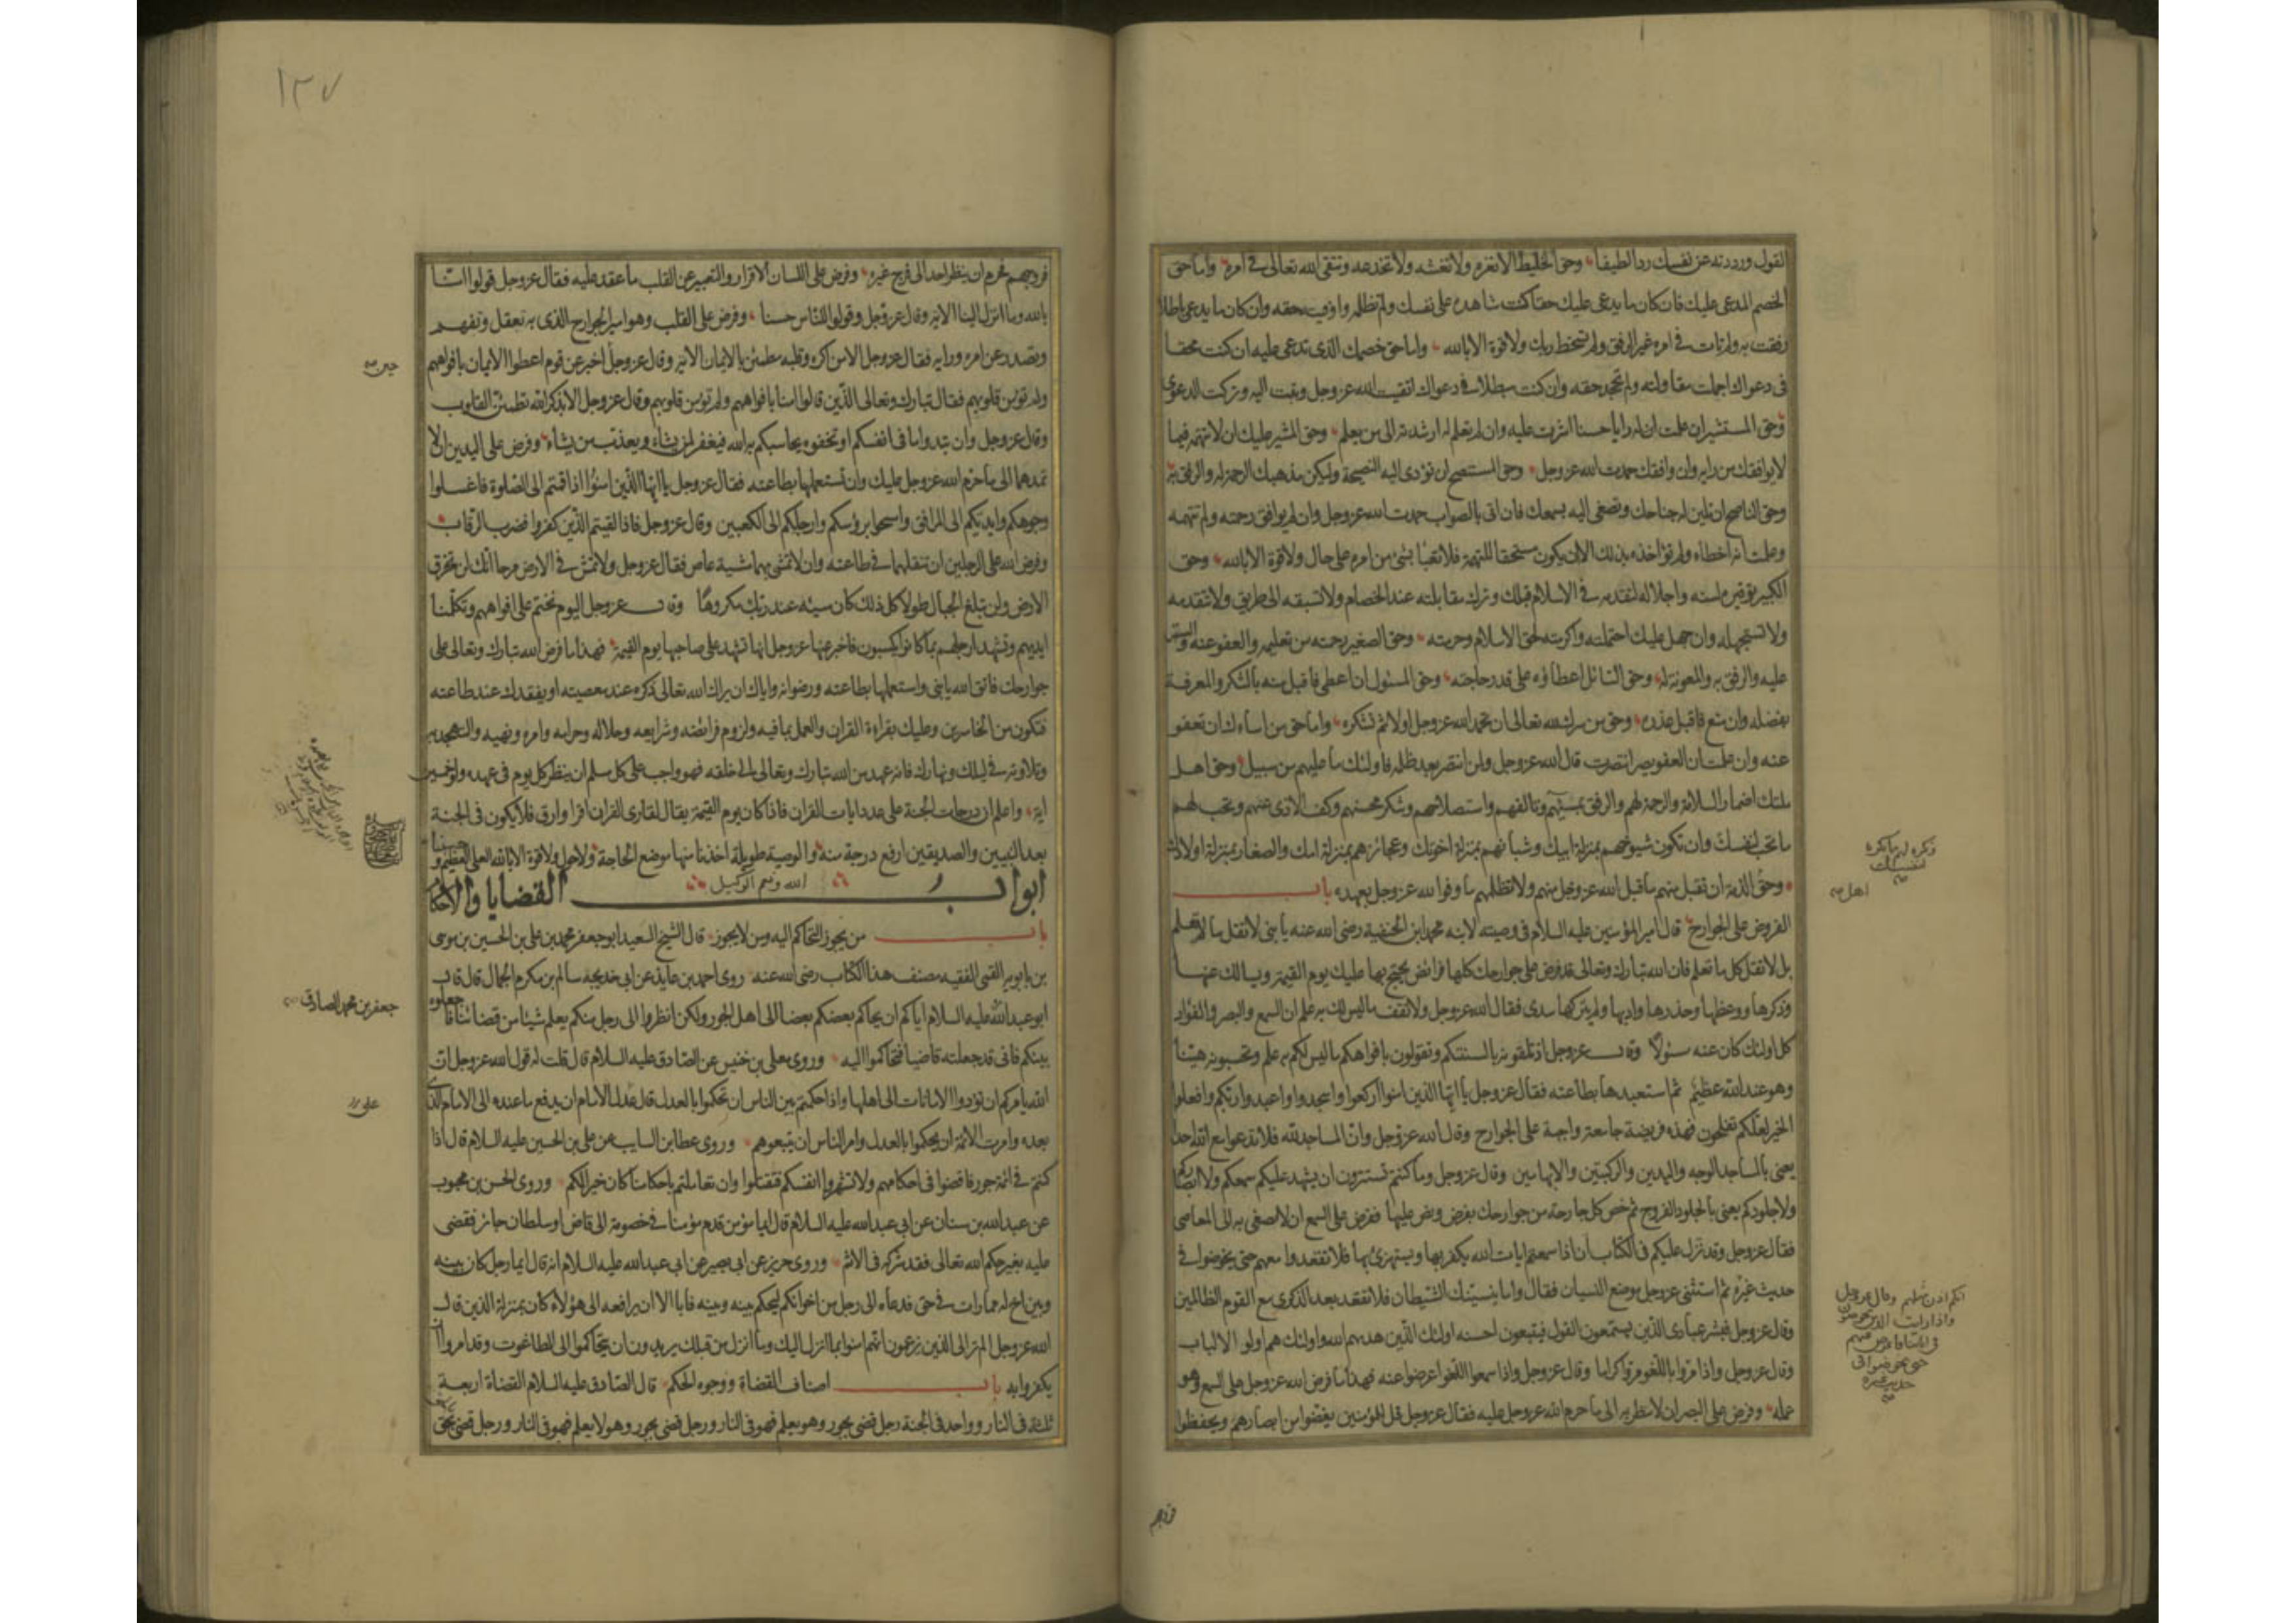 القول ورددته عن نفسك ردا لطيفا وحق الخليط الا تغره ولا تغشه ولا تخدعه وتتقى الله تعالى في امره واما حق
الخصم المدعى عليك فان كان ما يدعى عليك حقا كنت شاهده على نفسك ولم تظلمه واوفيته حقه وان كان ما يدعى باطلا
رفقت به ولم تات في امره غير الرفق ولم تسخط ربك ولا قوة الا بالله واما حق خصمك الذى تدعى عليه ان كنت محقا
فى دعواك اجملت مقاولته ولم تجحد حقه وان كنت مبطلا فى دعواك اتقيت الله عز وجل وتبت اليه وتركت الدعوى
وحق المستشير ان علمت ان له رايا حسنا اشرت عليه وان لم تعلم له ارشدته الى من يعلم وحق المشير عليك ان لا تتهمه فيما
لا يوافقك من رايه وان وافقك حمدت الله عز وجل وحق المستنصح ان تؤدى اليه النصيحة وليكن مذهبك الرحمة له والرفق به
وحق الناصح ان تلين له جناحك وتصغى اليه بسمعك فان اتى بالصواب حمدت الله عز وجل وان لم يوافق رحمته ولم تتهمه
وعلمت انه اخطاء ولم تؤاخذه بذلك الا ان يكون مستحقا للتهمة فلا تعبا بشئ من امره على حال ولا قوة الا بالله وحق
الكبير توقيره لسنه واجلاله لتقدمه في الاسلام قبلك وترك مقابلته عند الخصام ولا تسبقه الى طريق ولا تتقدمه
ولا تستجهله وان جهل عليك احتملته واكرمته لحق الاسلام وحرمته وحق الصغير رحمته من تعليمه والعفو عنه والستر
عليه والرفق به والمعونة له وحق السائل اعطاؤه على قدر حاجته وحق المسئول ان اعطى فاقبل منه بالشكر والمعرفة
بفضله وان منع فاقبل عذره وحق من سرك لله تعالى ان تحمد الله عز وجل اولا ثم تشكره واما حق من اساءك ان تعفو
عنه وان علمت ان العفو يضر انتصرت قال الله عز وجل ولمن انتصر بعد ظلمه فاولئك ما عليهم من سبيل وحق اهل
ملتك اضمار السلامة والرحمة لهم والرفق بمسيئهم وتالفهم واستصلاحهم وشكر محسنهم وكف الاذى عنهم وتحب لهم
ما تحب لنفسك وان تكون شيوخهم بمنزلة ابيك وشبانهم بمنزلة اخوتك وعجائزهم بمنزلة امك والصغار بمنزلة اولادك
وتكره لهم ما تكره لنفسك
وحق الذمة ان تقبل منهم ما قبل الله عز وجل منهم ولا تظلمهم ما وفوا لله عز وجل بعهده باب
اهل
الفروض على الجوارح قال امير المؤمنين عليه السلام فى وصيته لابنه محمد ابن الحنفية رضى الله عنه يا بنى لا تقل ما لا تعلم
بل لا تقل كل ما تعلم فان الله تبارك وتعالى قد فرض على جوارحك كلها فرائض يحتج بها عليك يوم القيمة ويسالك عنها
وذكرها ووعظها وحذرها وادبها ولم يتركها سدى فقال الله عز وجل ولا تقف ما ليس لك به علم ان السمع والبصر والفؤاد
كل اولئك كان عنه مسئولا وقال عز وجل اذ تلقونه بالسنتكم وتقولون بافواهكم ما ليس لكم به علم وتحسبونه هينا
وهو عند الله عظيم ثم استعبدها بطاعته فقال عز وجل يا ايها الذين امنوا اركعوا واسجدوا واعبدوا ربكم وافعلوا
الخير لعلكم تفلحون فهذه فريضة جامعة واجبة على الجوارح وقال الله عز وجل وان المساجد لله فلا تدعوا مع الله احدا
يعنى بالمساجد الوجه واليدين والركبتين والابهامين وقال عز وجل وما كنتم تستترون ان يشهد عليكم سمعكم ولا ابصاركم
ولا جلودكم يعنى بالجلود الفروج ثم خص كل جارحة من جوارحك بفرض ونص عليها ففرض على السمع ان لا تصغى به الى المعاصى
فقال عز وجل وقد نزل عليكم فى الكتاب ان اذا سمعتم ايات الله يكفر بها ويستهزئ بها فلا تقعدوا معهم حتى يخوضوا فى
حديث غيره ثم استثنى عز وجل موضع النسيان فقال واما ينسينك الشيطان فلا تقعد بعد الذكرى مع القوم الظالمين
انكم اذن مثلهم وقال عز وجل
واذا رايت الذين يخوضون
فى اياتنا فاعرض عنهم
حتى يخوضوا فى
حديث غيره
وقال عز وجل فبشر عبادى الذين يستمعون القول فيتبعون احسنه اولئك الذين هديهم الله واولئك هم اولو الالباب
وقال عز وجل واذا مروا باللغو مروا كراما وقال عز وجل واذا سمعوا اللغو اعرضوا عنه فهذا ما فرض الله عز وجل على السمع وهو
عمله وفرض على البصر ان لا ينظر به الى ما حرم الله عز وجل عليه فقال عز وجل قل للمؤمنين يغضوا من ابصارهم ويحفظوا
فروجهم
١٢٧
فروجهم فحرم ان ينظر احد الى فرج غيره وفرض على اللسان الاقرار والتعبير عن القلب ما عقد عليه فقال عز وجل قولوا امنا
بالله وما انزل الينا الاية وقال عز وجل وقولوا للناس حسنا وفرض على القلب وهو امير الجوارح الذى به تعقل وتفهم
وتصدر عن امره ورايه فقال عز وجل الا من اكره وقلبه مطمئن بالايمان الاية وقال عز وجل اخبر عن قوم اعطوا الايمان بافواههم
حين
ولم تؤمن قلوبهم فقال تبارك وتعالى الذين قالوا امنا بافواههم ولم تؤمن قلوبهم وقال عز وجل الا بذكر الله تطمئن القلوب
وقال عز وجل وان تبدوا ما فى انفسكم او تخفوه يحاسبكم به الله فيغفر لمن يشاء ويعذب من يشاء وفرض على اليدين ان لا
تمدهما الى ما حرم الله عز وجل عليك وان تستعملها بطاعته فقال عز وجل يا ايها الذين امنوا اذا قمتم الى الصلوة فاغسلوا
وجوهكم وايديكم الى المرافق وامسحوا برؤسكم وارجلكم الى الكعبين وقال عز وجل فاذا لقيتم الذين كفروا فضرب الرقاب
وفرض الله على الرجلين ان تنقلهما في طاعته وان لا تمشى بهما مشية عاص فقال عز وجل ولا تمش في الارض مرحا انك لن تخرق
الارض ولن تبلغ الجبال طولا كل ذلك كان سيئه عند ربك مكروها وقال عز وجل اليوم نختم على افواههم وتكلمنا
ايديهم وتشهد ارجلهم بما كانوا يكسبون فاخبر عنها عز وجل انها تشهد على صاحبها يوم القيمة فهذا ما فرض الله تبارك وتعالى على
جوارحك فاتق الله يا بنى واستعملها بطاعته ورضوانه واياك ان يراك الله تعالى ذكره عند معصيته او يفقدك عند طاعته
فتكون من الخاسرين وعليك بقراءة القران والعمل بما فيه ولزوم فرائضه وشرايعه وحلاله وحرامه وامره ونهيه والتهجد به
وتلاوته في ليلك ونهارك فانه عهد من الله تبارك وتعالى الى خلقه فهو واجب على كل مسلم ان ينظر كل يوم فى عهده ولو خمسين
اية واعلم ان درجات الجنة على عدد ايات القران فاذا كان يوم القيمة يقال لقارى القران اقرا وارق فلا يكون فى الجنة
بعد النبيين والصديقين ارفع درجة منه والوصية طويلة اخذنا منها موضع الحاجة ولا حول ولا قوة الا بالله العلى العظيم وحسبنا
الله ونعم الوكيل
ابواب القضايا والاحكام
باب من يجوز التحاكم اليه ومن لا يجوز قال الشيخ السعيد ابو جعفر محمد بن على بن الحسين بن موسى
بن بابويه القمى الفقيه مصنف هذا الكتاب رضى الله عنه روى احمد بن عايذ عن ابى خديجة سالم بن مكرم الجمال قال قال
ابو عبد الله عليه السلام اياكم ان يحاكم بعضكم بعضا الى اهل الجور ولكن انظروا الى رجل منكم يعلم شيئا من قضائنا فاجعلوه
جعفر بن محمد الصادق
بينكم فانى قد جعلته قاضيا فتحاكموا اليه وروى معلى بن خنيس عن الصادق عليه السلام قال قلت له قول الله عز وجل ان
الله يامركم ان تؤدوا الامانات الى اهلها واذا حكمتم بين الناس ان تحكموا بالعدل قال عدل الامام ان يدفع ما عنده الى الامام الذى
على
بعده وامرت الائمة ان يحكموا بالعدل وامر الناس ان يتبعوهم وروى عطا بن السايب عن على بن الحسين عليه السلام قال اذا
كنتم فى ائمة جور فاقضوا فى احكامهم ولا تشهروا انفسكم فتقتلوا وان تعاملتم باحكامنا كان خيرا لكم وروى الحسن بن محبوب
عن عبد الله بن سنان عن ابى عبد الله عليه السلام قال ايما مؤمن قدم مؤمنا فى خصومة الى قاض او سلطان جائر فقضى
عليه بغير حكم الله تعالى فقد شركه فى الاثم وروى حريز عن ابى بصير عن ابى عبد الله عليه السلام انه قال ايما رجل كان بينه
وبين اخ له ممارات في حق فدعاه الى رجل من اخوانكم ليحكم بينه وبينه فابا الا ان يرافعه الى هؤلاء كان بمنزلة الذين قال
الله عز وجل الم تر الى الذين يزعمون انهم امنوا بما انزل اليك وما انزل من قبلك يريدون ان يتحاكموا الى الطاغوت وقد امروا ان
يكفروا به باب اصناف القضاة ووجوه الحكم قال الصادق عليه السلام القضاة اربعة
ثلثة فى النار وواحد فى الجنة رجل قضى بجور وهو يعلم فهو فى النار ورجل قضى بجور وهو لا يعلم فهو فى النار ورجل قضى بحق